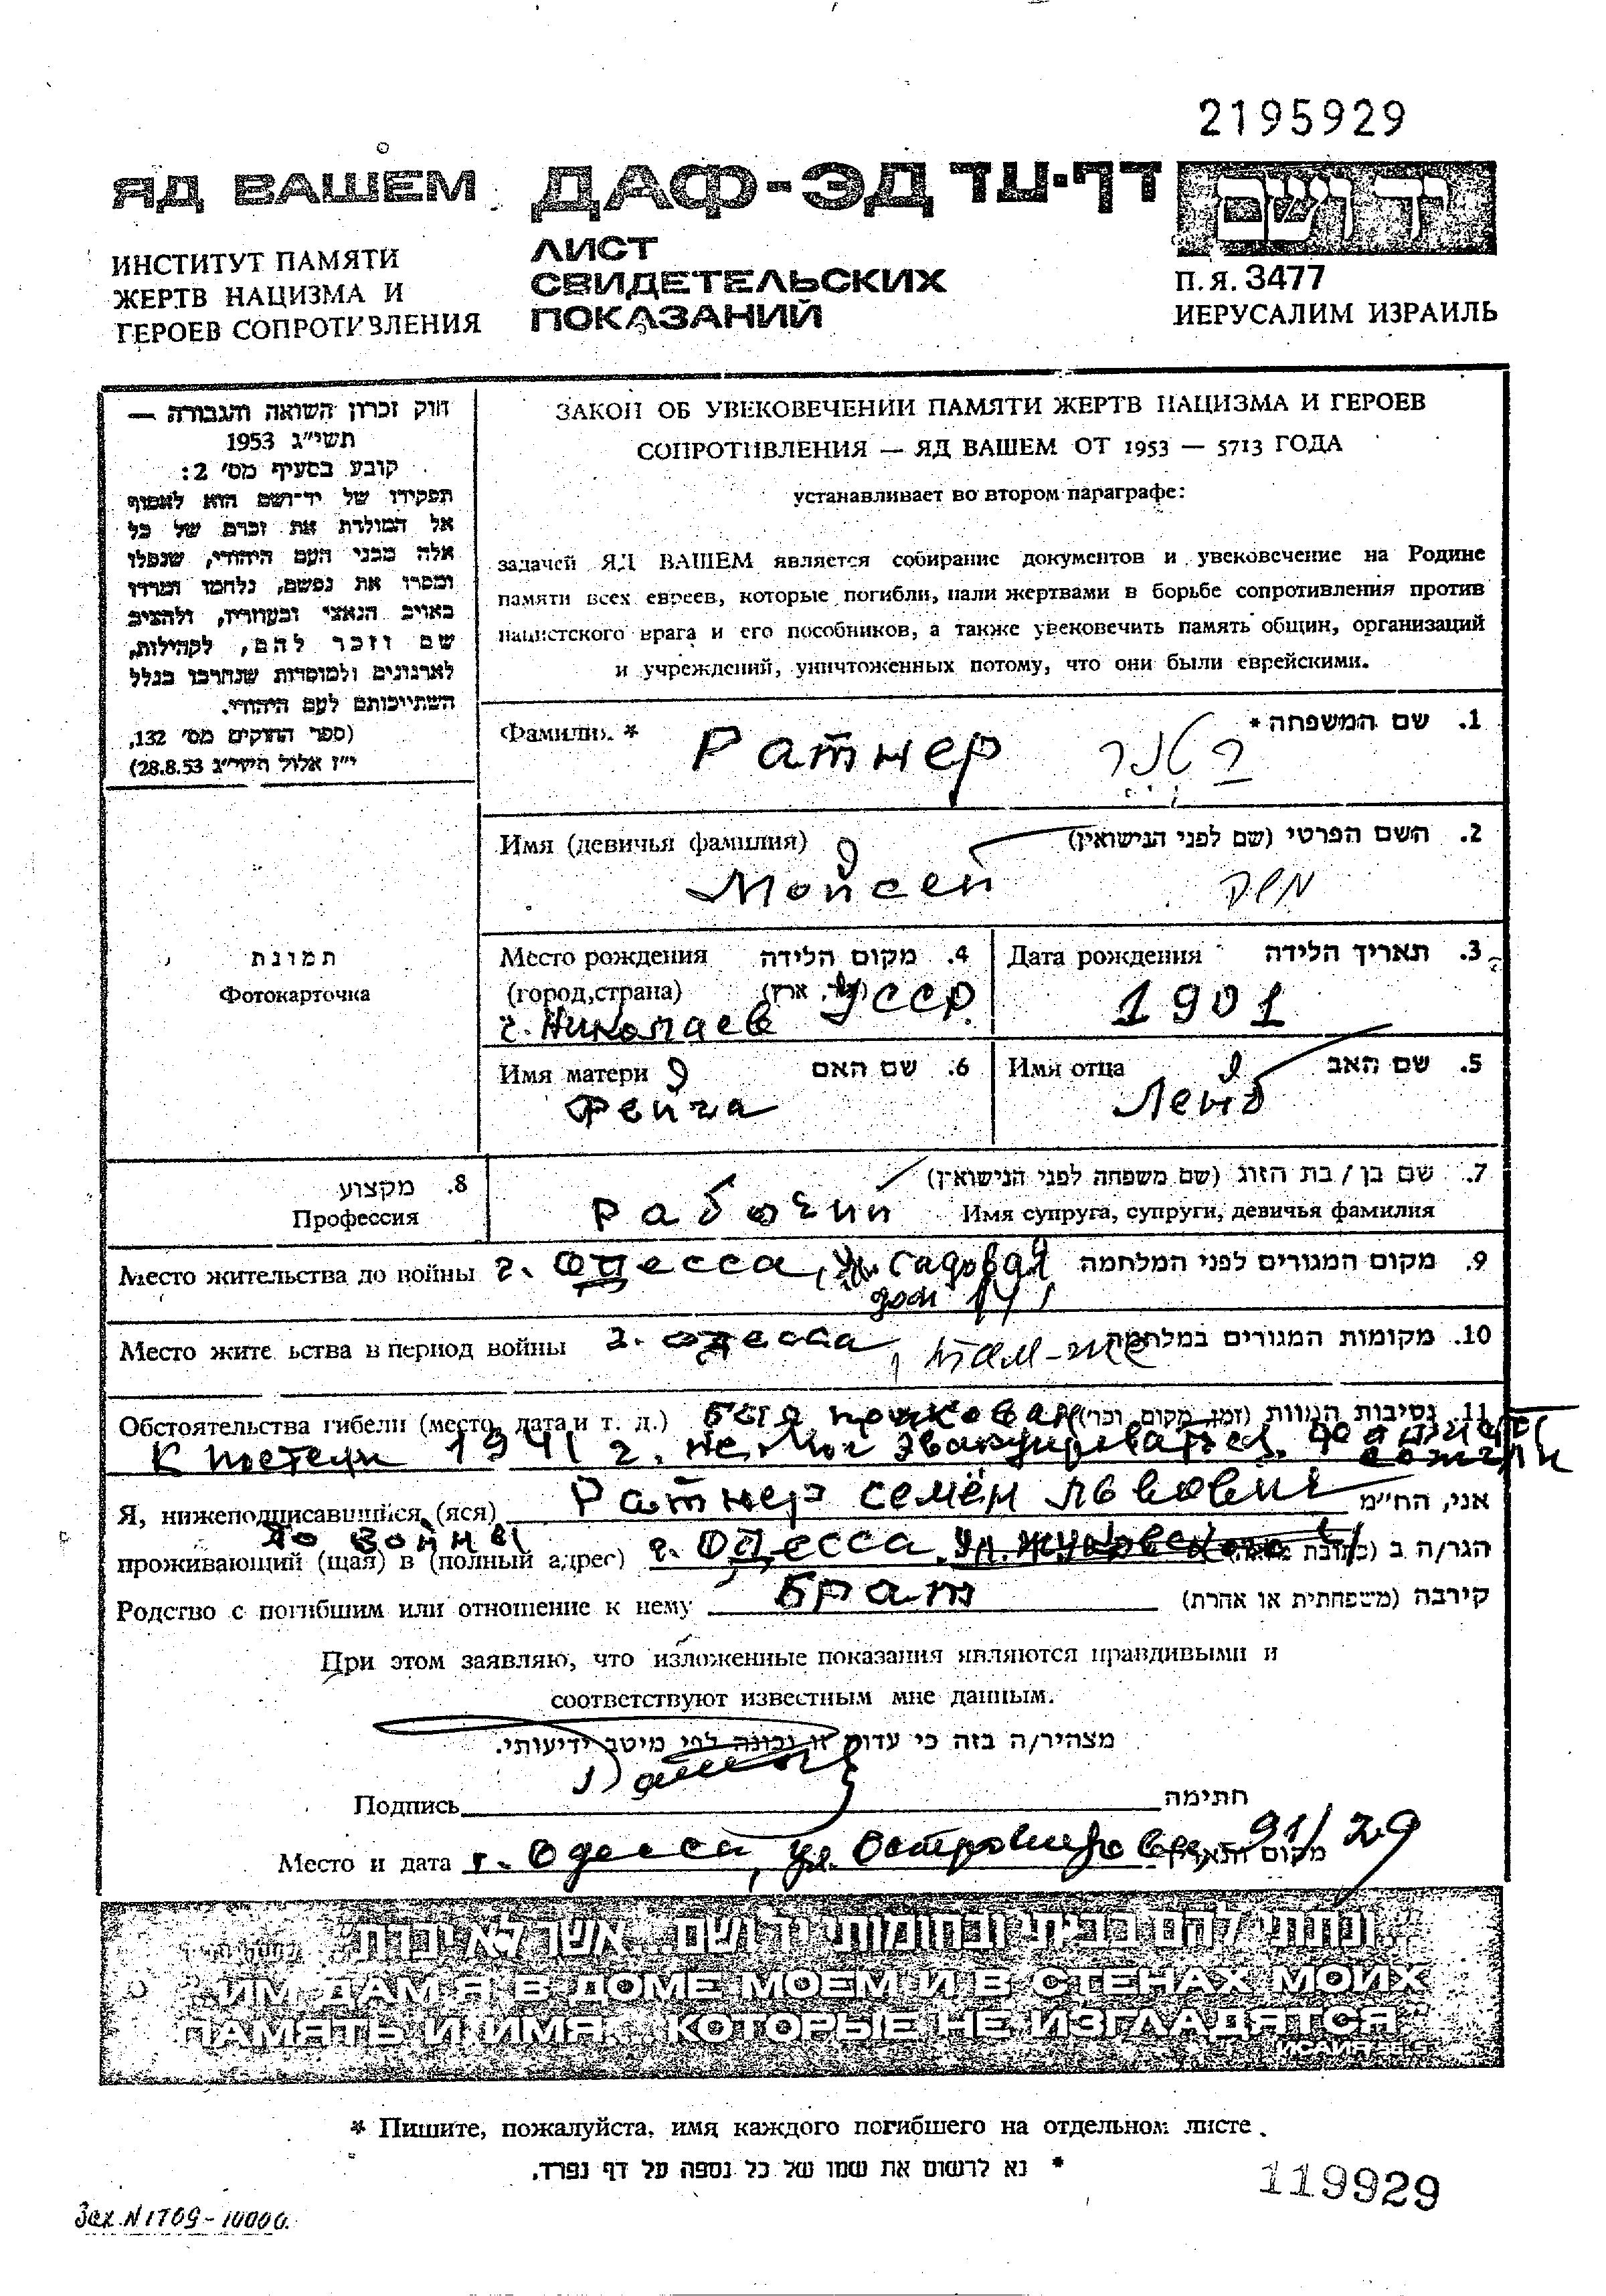 2195929
ЯД ВАШЕМ ДАФ-ЭД דף-עד יד ושם
ИНСТИТУТ ПАМЯТИ
ЖЕРТВ НАЦИЗМА И
ГЕРОЕВ СОПРОТИВЛЕНИЯ
ЛИСТ
СВИДЕТЕЛЬСКИХ
ПОКАЗАНИЙ
П.Я. 3477
ИЕРУСАЛИМ ИЗРАИЛЬ
חוק זכרון השואה והגבורה —
תשי״ג 1953
קובע בסעיף מס׳ 2:
תפקידו של יד־ושם הוא לאסוף
אל המולדת את זכרם של כל
אלה מבני העם היהודי, שנפלו
ומסרו את נפשם, נלחמו ומרדו
באויב הנאצי ובעוזריו, ולהציב
שם וזכר להם, לקהילות,
לארגונים ולמוסדות שנחרבו בגלל
השתייכותם לעם היהודי.
(ספר החוקים מס׳ 132,
י״ז אלול תשי״ג 28.8.53)
ЗАКОН ОБ УВЕКОВЕЧЕНИИ ПАМЯТИ ЖЕРТВ НАЦИЗМА И ГЕРОЕВ
СОПРОТИВЛЕНИЯ — ЯД ВАШЕМ ОТ 1953 — 5713 ГОДА
устанавливает во втором параграфе:
задачей ЯД ВАШЕМ является собирание документов и увековечение на Родине
памяти всех евреев, которые погибли, пали жертвами в борьбе сопротивления против
нацистского врага и его пособников, а также увековечить память общин, организаций
и учреждений, уничтоженных потому, что они были еврейскими.
Фамилия * Ратнер רטנר 1. שם המשפחה *
Имя (девичья фамилия) 2. השם הפרטי (שם לפני הנישואין)
Мойсей
תמונת
Фотокарточка
Место рождения 4. מקום הלידה
(город,страна) УССР
г. Николаев
Дата рождения 3. תאריך הלידה
1901
Имя матери 6. שם האם
Фейга
Имя отца 5. שם האב
Лейб
8. מקצוע
Профессия
7. שם בן / בת הזוג (שם משפחה לפני הנישואין)
рабочий Имя супруга, супруги, девичья фамилия
Место жительства до войны г. Одесса, ул. Садовая 9. מקום המגורים לפני המלחמה
дом
Место жительства в период войны г. Одесса, 10. מקומות המגורים במלחמה
Обстоятельства гибели (место, дата и т. д.) был прикован 11. נסיבות המוות (זמן, מקום, וכר)
к постели 1941 г. не мог эвакуироваться.
сожгли
Я, нижеподписавшийся (яся) Ратнер Семён Львович אני, הח״מ
до войны
проживающий (щая) в (полный адрес) г. Одесса הגר/ה ב
Родство с погибшим или отношение к нему брат קירבה (משפחתית או אחרת)
При этом заявляю, что изложенные показания являются правдивыми и
соответствуют известным мне данным.
מצהיר/ה בזה כי עדות זו נכונה לפי מיטב ידיעותי.
Подпись חתימה
Место и дата г. Одесса, ул. Островидова 91/29 מקום ותאריך
״ונתתי להם בביתי ובחומותי יד ושם...אשר לא יכרת״
"ИМ ДАМ Я В ДОМЕ МОЕМ И В СТЕНАХ МОИХ
ПАМЯТЬ И ИМЯ... КОТОРЫЕ НЕ ИЗГЛАДЯТСЯ"
ИСАИЯ 56.5
* Пишите, пожалуйста, имя каждого погибшего на отдельном листе.
* נא לרשום את שמו של כל נספה על דף נפרד.
119929
Зак. N 1709-10000.